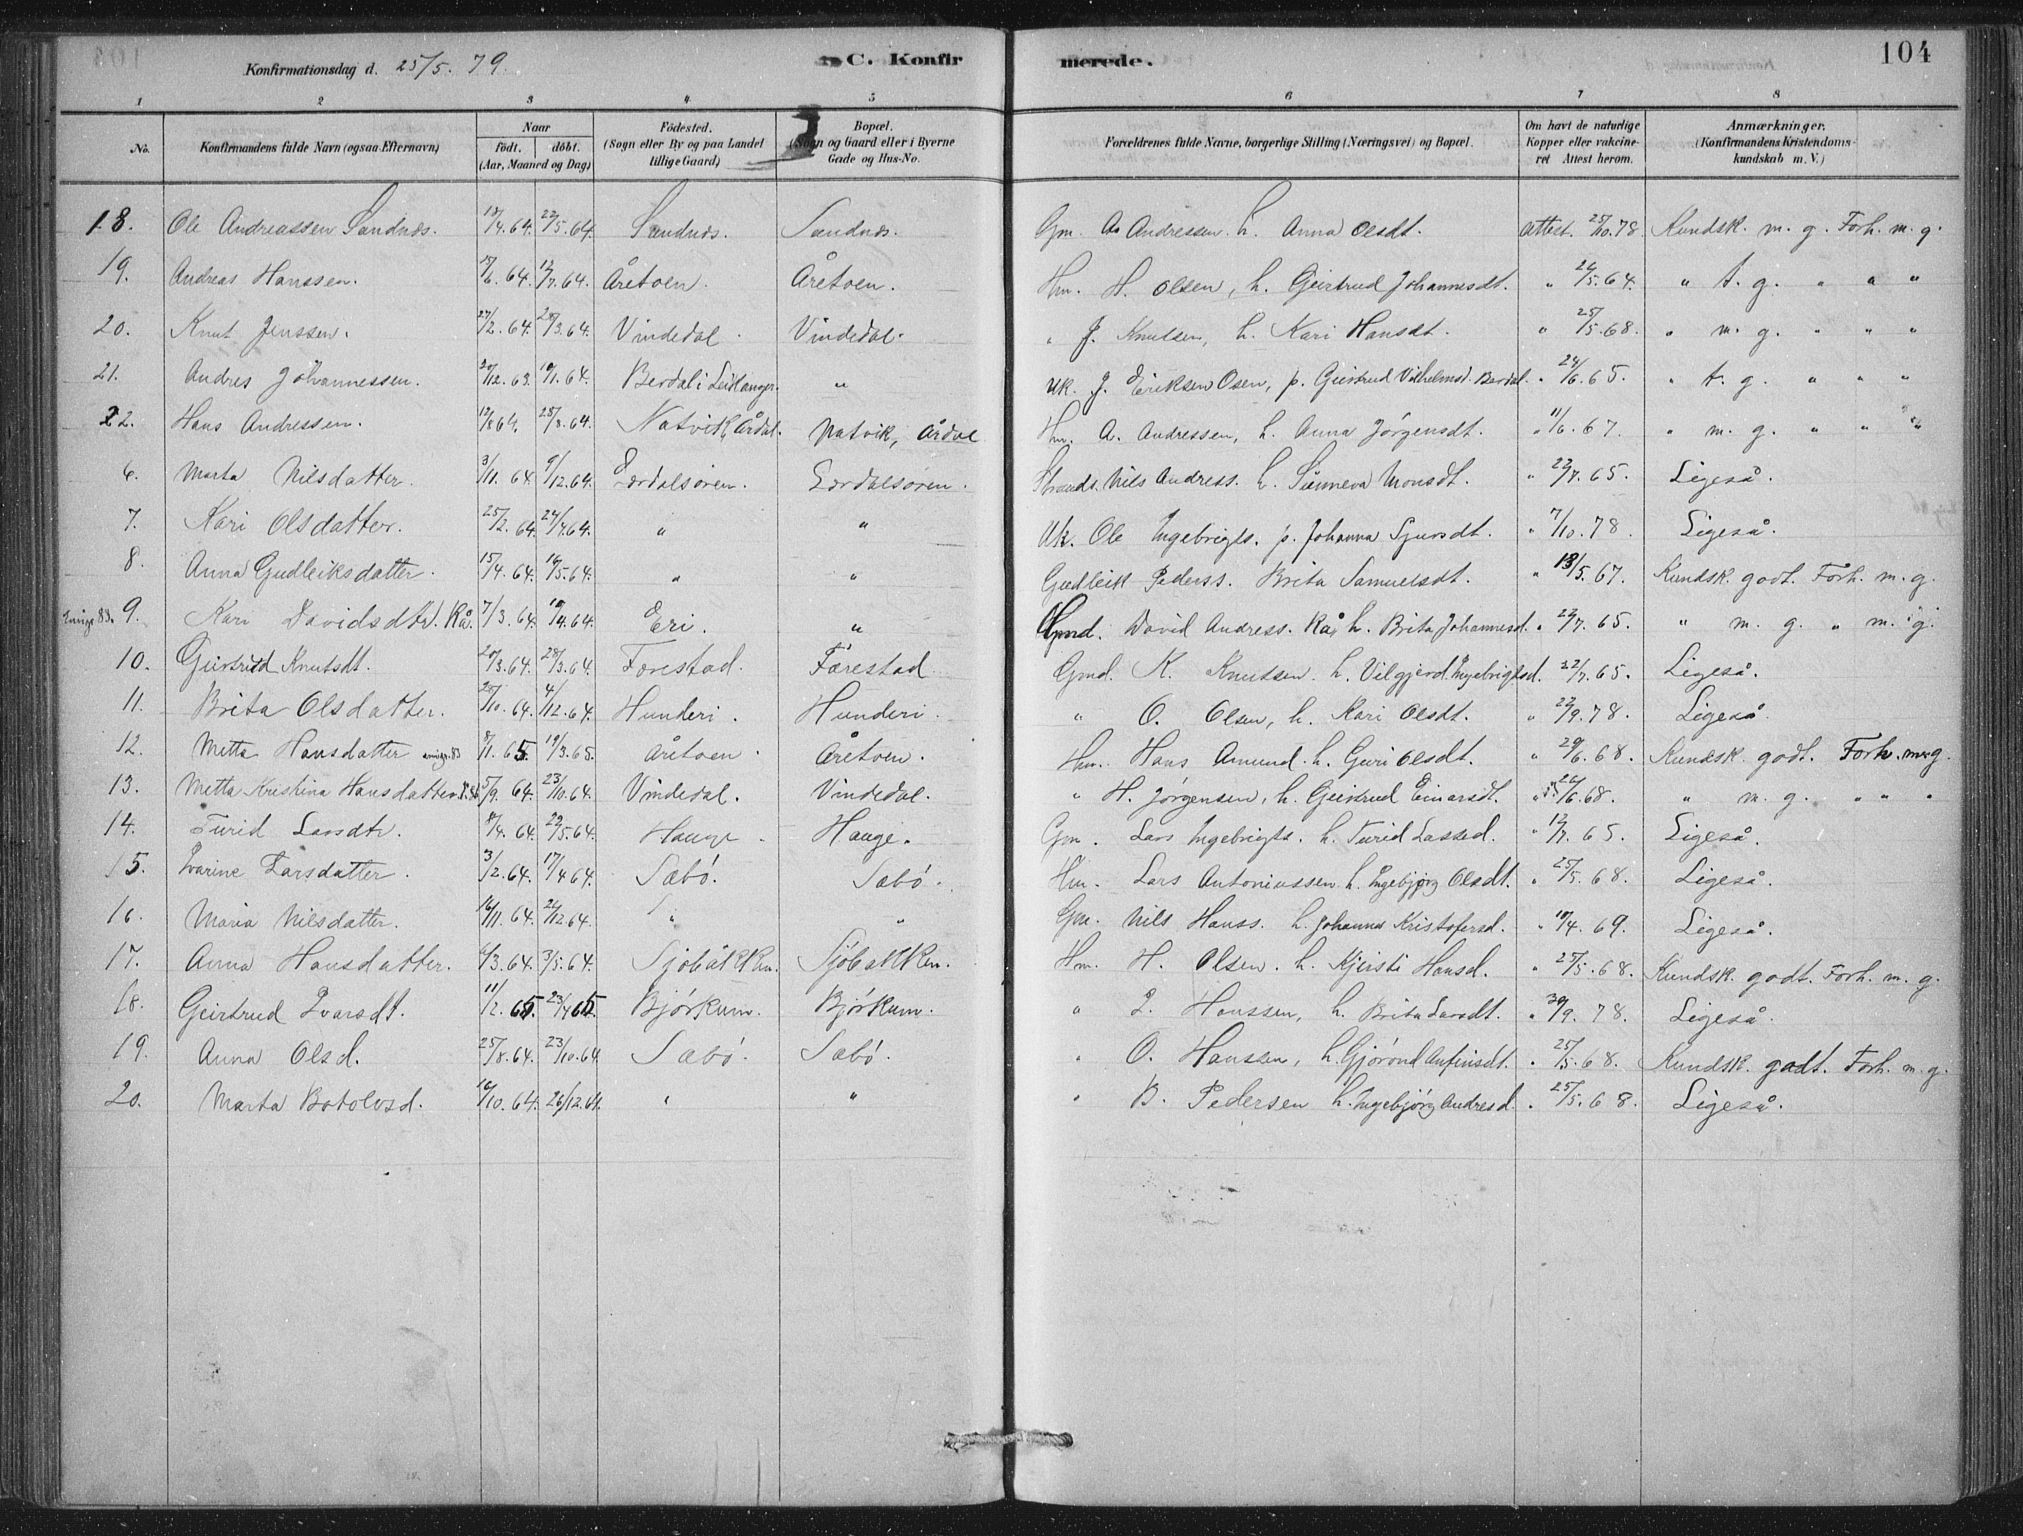 Konfirmationsdag d. 25/5. 79. C. Konfir merede. 104
1 2 3 4 5 6 7 8
No. Konfirmandens fulde Navn (ogsaa Efternavn) Naar födt. döbt. (Aar, Maaned og Dag) Födested. (Sogn eller By og paa Landet tillige Gaard) Bopæl. (Sogn og Gaard eller i Byerne Gade og Hus-No. Forældrenes fulde Navne, borgerlige Stilling (Næringsvei) og Bopæl. Om havt de naturlige Kopper eller vakcineret Attest herom. Anmærkninger. (Konfirmandens Kristendomskundskab m. V.)
18. Ole Andreassen Sandnæs. 13/4.64. 22/5.64. Sandnæs. Sandnæs. Gm. A. Andressen. h. Anna Olsdt. Attest. 25/10.78. Kundsk. m. g. Forh. m. g.
19. Andreas Hanssen. 18/6.64. 12/7.64. Åretøen. Åretøen. Hm. H. Olsen, h. Geirtrud Johannesdt. " 26/5.64. " t. g. " " "
20. Knut Jenssen. 27/2.64. 28/3.64. Vindedal. Vindedal. " J. Knutsen, h. Kari Hansdt. " 25/5.68. " m. g. " " "
21. Andres Johannessen. 20/12.63. 10/1.64. Berdal i Leikanger. " Uk. J. Eriksen Osen, p. Geirtrud Vilhelmsd. Berdal. " 24/6.65. " t. g. " " "
22. Hans Andressen. 12/8 64. 28/8.64. Natvik, Årdal. Natvik, Årdal Hm. A. Andressen, h. Anna Jörgensdt. " 11/6.67. " m. g. " " "
6. Marta Nilsdatter. 3/11.64. 9/12.64. Erdalsøren. Erdalsøren. Strands. Nils Andress. h. Sünneva Monsdt. " 22/7.65. Ligeså.
7. Kari Olsdatter. 25/2.64. 24/4.64. " " Uk. Ole Ingebrigts. p. Johanna Sjursdt. " 7/10.78. Ligeså.
8. Anna Gudleiksdatter. 15/4.64. 16/5.64. " " Gudleik Pederss. Brita Samuelsdt. " 13/5.67. Kundsk. godt. Forh. m. g.
9. Kari Davidsdtr. Rå. 7/3.64. 10/4.64. Eri. " Gmd. David Andress. Rå, h. Brita Johannesd. " 22/7.65. " m. g. " m. g.
10. Geirtrud Knutsdt. 20/3.64. 28/3.64. Farestad. Farestad. Gmd. K. Knutsen. h. Vilgjerd Ingebrigtsd. " 22/7.65. Ligeså.
11. Brita Olsdatter. 28/10.64. 4/12.64. Hunderi. Hunderi. " O. Olsen, h. Kari Olsdt. " 22/9.78. Ligeså.
12. Metta Hansdatter emigr. 83 8/11.65. 19/3.65. Åretøen. Åretøen. Hm. Hans Amund. h. Guri Olsdt. " 29/6.68. Kundsk. godt. Forh. m. g.
13. Metta Kristina Hansdatter 5/9.64. 23/10.64. Vindedal. Vindedal. " H. Jørgensen, h. Geirtrud Einarsdt. " 26/6.68. " m. g. " " "
14. Turid Larsdtr. 8/4.64. 22/5.64. Hauge. Hauge. Gm. Lars Ingebrigts. h. Turid Lassed. " 12/7.65. Ligeså.
15. Ivarine Larsdatter. 3/2.64. 17/4.64. Sæbö. Sæbö. Hm. Lars Antoniussen h. Ingebjörg Olsdt. " 25/5.68. Ligeså.
16. Maria Nilsdatter. 16/11.64. 26/12.64. " " Gm. Nils Hanss. h. Johanna Kristofersd. " 10/4.69. Ligeså.
17. Anna Hansdatter. 6/3.64. 3/5.64. Sjöbakken. Sjöbakken. Hm. H. Olsen. h. Kjersti Hansd. " 25/5.68. Kundsk. godt. Forh. m. g.
18. Geirtrud Ivarsdt. 11/2.65. 23/4.65. Bjørkum. Bjørkum. " I. Hanssen, h. Brita Larsdt. " 30/9.78. Ligeså.
19. Anna Olsd. 25/8.64. 23/10.64. Sæbö. Sæbö. " O. Hanssen, h. Gjörond Anfinsdt. " 25/5.68. Kundsk. godt. Forh. m. g.
20. Marta Botolvsd. 16/10.64. 26/12.64. " " " B. Pedersen h. Ingebjörg Andresd. " 25/5.68. Ligeså.